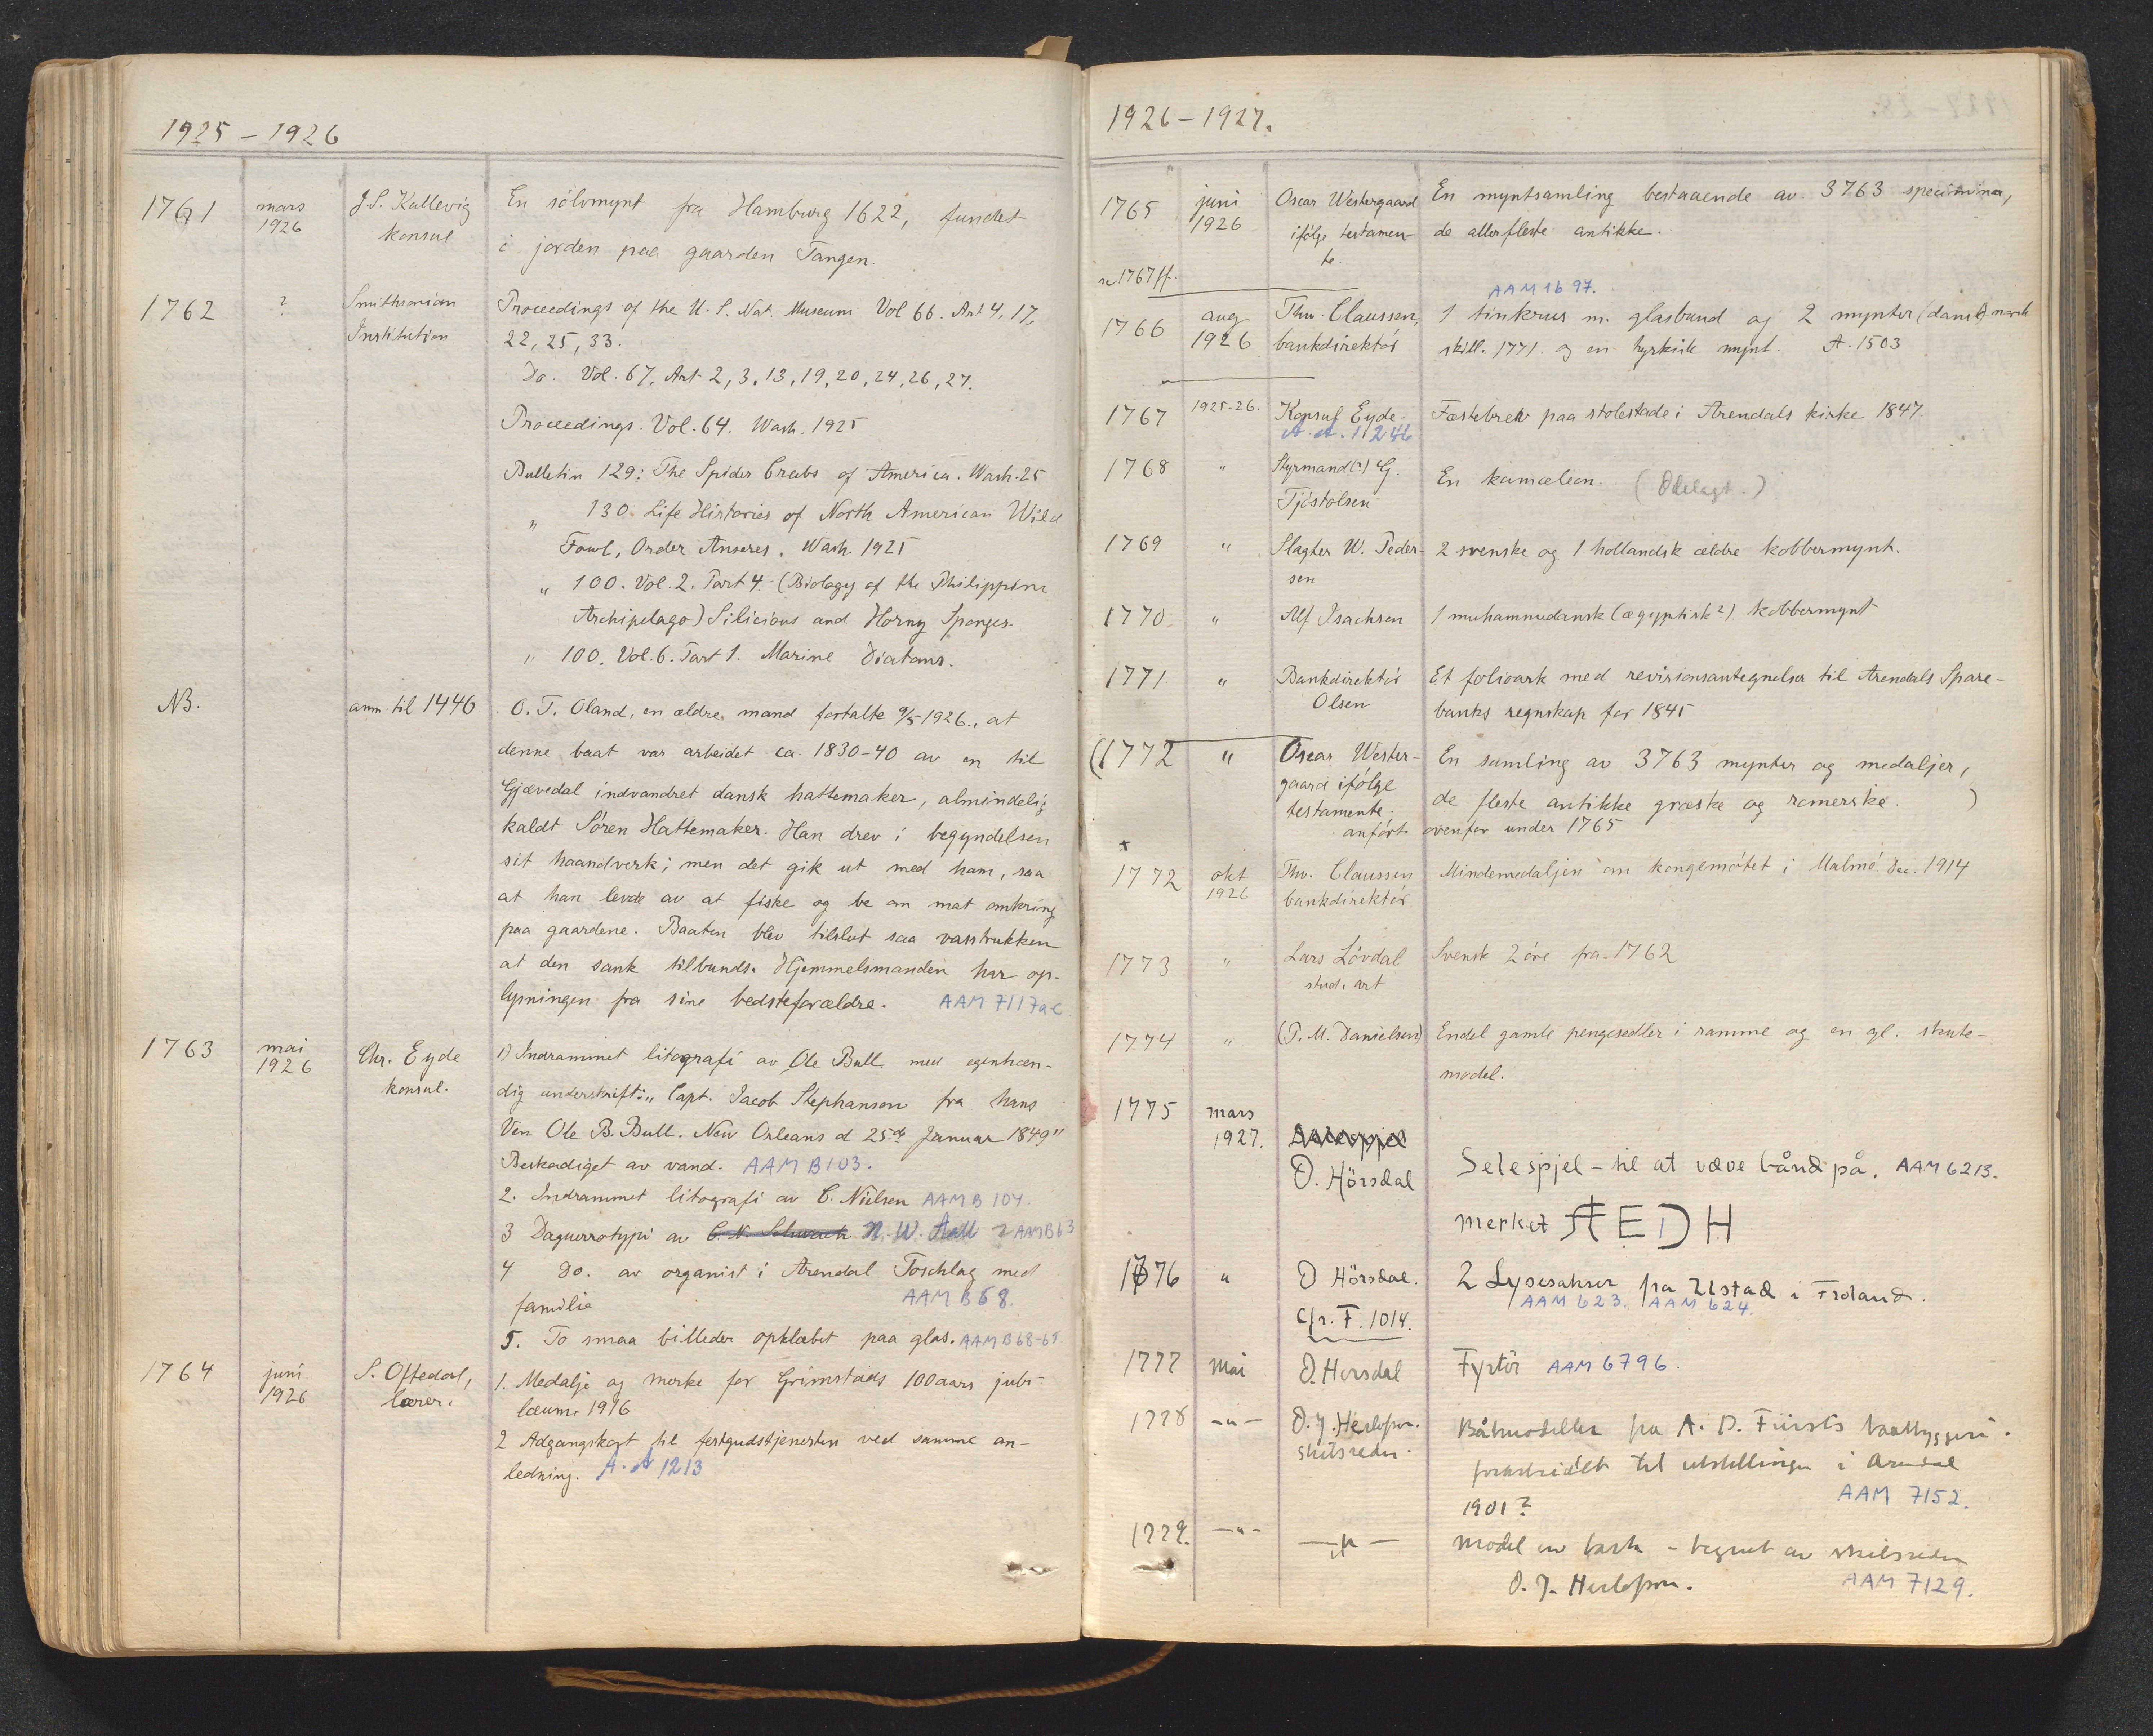 1925 – 1926
1761 mars 1926 J.S. Kallevig konsul En sölvmynt fra Hamburg 1622, fundet
i jorden paa gaarden Tangen.
1762 ? Smithsonian Institution Proceedings of the U.S. Nat. Museum Vol 66. Art 4, 17,
22, 25, 33.
Do. Vol. 67, Art 2, 3, 13, 19, 20, 24, 26, 27.
Proceedings. Vol. 64. Wash. 1925
Bulletin 129: The Spider Crabs of America. Wash. 25
„ 130. Life Histories of North American Wild
Fowl, Order Anseres. Wash. 1925
„ 100. Vol. 2. Part 4. (Biology of the Philippine
Archipelago) Silicious and Horny Sponges.
„ 100. Vol. 6. Part 1. Marine Diatoms.
NB. anm. til 1446 O. T. Oland, en ældre mand fortalte 9/5 1926, at
denne baat var arbeidet ca. 1830-40 av en til
Gjævedal indvandret dansk hattemaker, almindelig
kaldt Sören Hattemaker. Han drev i begyndelsen
sit haandverk; men det gik ut med ham, saa
at han levde av at fiske og be om mat omkring
paa gaardene. Baaten blev tilslut saa vasstrukken
at den sank tilbunds. Hjemmelsmanden har op-
lysningen fra sine bedsteforældre. AAM 7117a-c
1763 mai 1926 Chr. Eyde konsul. 1) Indrammet litografi av Ole Bull med egenhæn-
dig underskrift: „Capt. Jacob Stephanson fra hans
Ven Ole B. Bull. New Orleans d 25de Januar 1849"
Beskadiget av vand. AAM B103.
2. Indrammet litografi av C. Nielsen AAM B 104.
3 Daguerrotypi av C. N. Schwach N. W. Aall AAM B63
4 Do. av organist i Arendal Poschlag med
familie AAM B 68.
5. To smaa billeder opklæbet paa glas. AAM B68-65
1764 juni 1926 S. Oftedal, lærer. 1. Medalje og merke for Grimstads 100 aars jubi-
læum 1916
2 Adgangskort til festgudstjenesten ved samme an-
ledning. A.A 1213
1926 – 1927.
1765 juni 1926 Oscar Westergaard ifölge testamen-te. En myntsamling bestaaende av 3763 specimina,
de allerfleste antikke.
n 1767 ff.
AAM 1697.
1766 aug 1926 Thv. Claussen, bankdirektör 1 tinkrus m. glasbund og 2 mynter (dansk) norsk
skill. 1771. og en tyrkisk mynt. A. 1503
1767 1925-26. Konsul Eyde. A.A. 11246 Fæstebrev paa stolestade i Arendals kirke 1847
1768 " Styrmand(?) G. Tjöstolsen En kamæleon. (Ödelagt.)
1769 " Slagter W. Peder-sen 2 svenske og 1 hollandsk ældre kobbermynt.
1770 " Alf Isachsen 1 muhammedansk (ægyptisk?) kobbermynt
1771 " Bankdirektör Olsen Et folioark med revisionsantegnelser til Arendals Spare-
banks regnskap for 1845
(1772 " Oscar Wester-gaard ifölge testamente. En samling av 3763 mynter og medaljer,
de fleste antikke græske og romerske. )
anfört ovenfor under 1765
x
1772 okt 1926 Thv. Claussen bankdirektör Mindemedaljen om kongemötet i Malmö Dec. 1914
1773 " Lars Lövdal stud. art Svensk 2 öre fra 1762
1774 " (P. M. Danielsen) Endel gamle pengesedler i ramme og en gl. skute-
model.
1775 mars 1927. O. Hörsdal Selespjel – til at væve bånd på. AAM 6213.
merket AEDH
1776 " O Hörsdal. Cfr. F. 1014. 2 Lysesakser fra Ustad i Froland.
AAM 623. AAM 624.
1777 Mai O. Horsdal Fyrtöi AAM 6796.
1778 – " – O. J. Herlofson. skibsreder. Båtmodeller fra A. D. Fürsts baatbyggeri.
forarbeidet til utstillingen i Arendal
1901? AAM 7152.
1779. – " – – " – Model av bark – tegnet av skibsreder
O. J. Herlofson. AAM 7129.